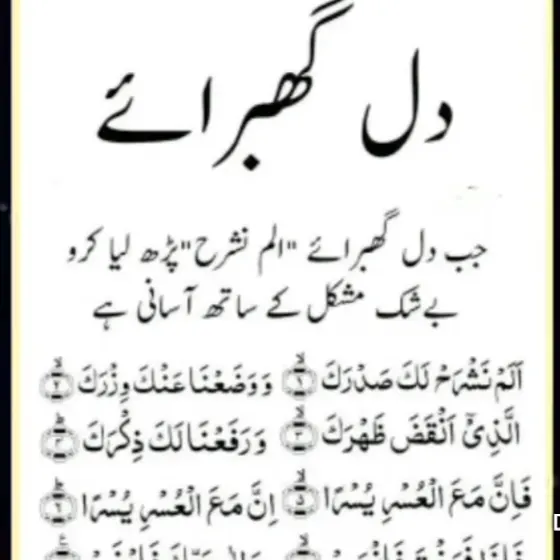 دل گھبرائے
جب دل گھبرائے "الم نشرح" پڑھ لیا کرو
بے شک مشکل کے ساتھ آسانی ہے
اَلَمْ نَشْرَحْ لَكَ صَدْرَكَ ۙ﴿۱﴾ وَ وَضَعْنَا عَنْكَ وِزْرَكَ ۙ﴿۲﴾
الَّذِیْۤ اَنْقَضَ ظَهْرَكَ ۙ﴿۳﴾ وَ رَفَعْنَا لَكَ ذِكْرَكَ ؕ﴿۴﴾
فَاِنَّ مَعَ الْعُسْرِ یُسْرًا ۙ﴿۵﴾ اِنَّ مَعَ الْعُسْرِ یُسْرًا ؕ﴿۶﴾